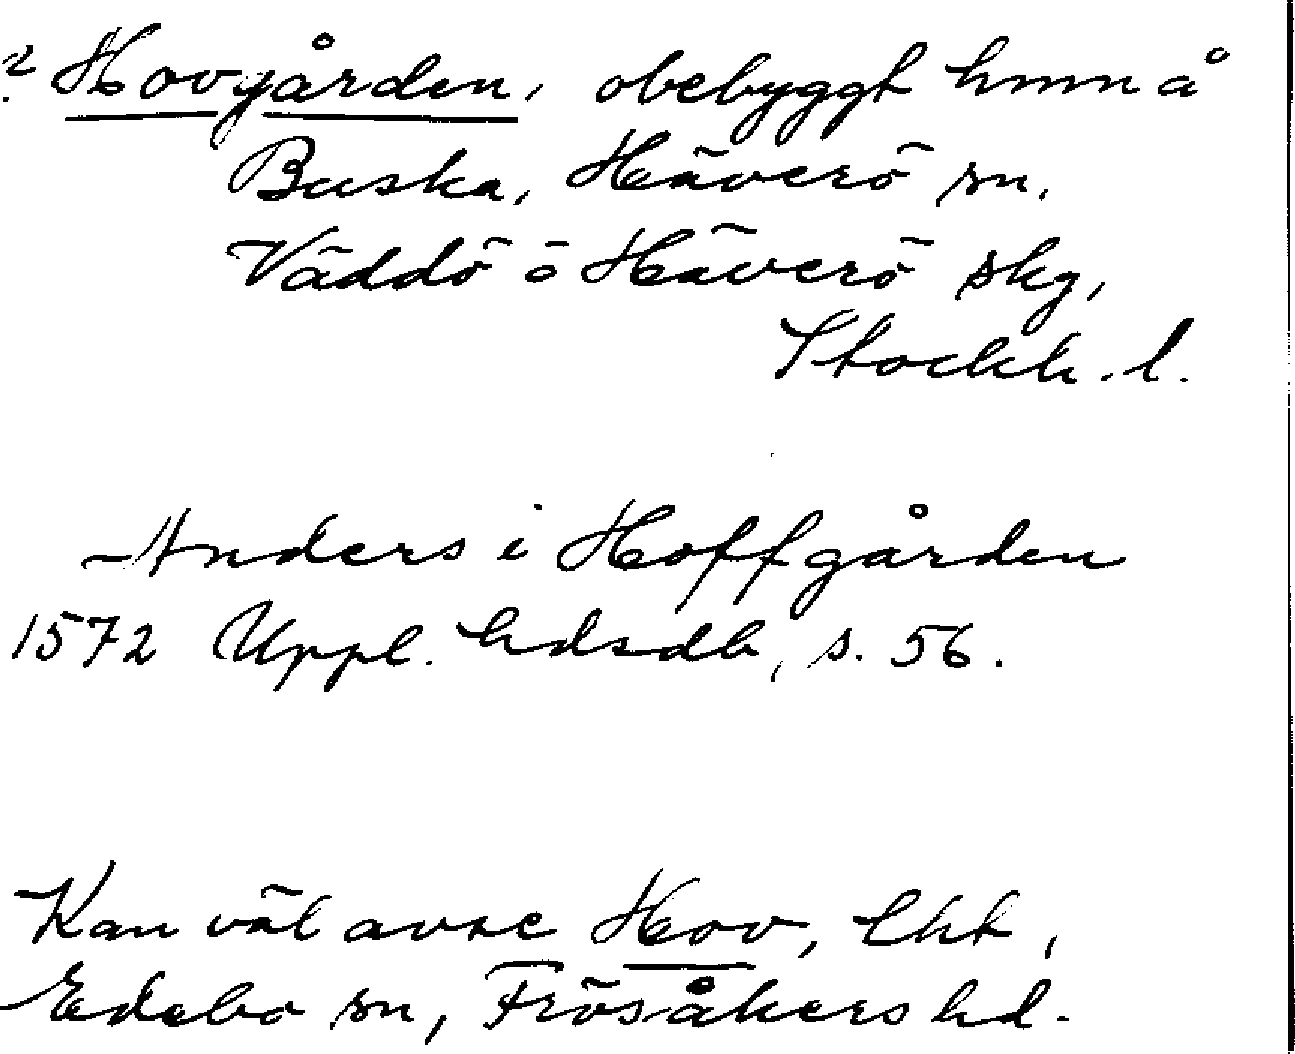 ? Hovgården, obebyggt hmn å
Buska, Häverö sn,
Väddö ö Häverö skg,
Stockh. l.
Anders i Hoffgården
1572 Uppl. hdsdb, s. 56.
Kan väl avse Hov, lht,
Edebo sn, Frösåkers hd.